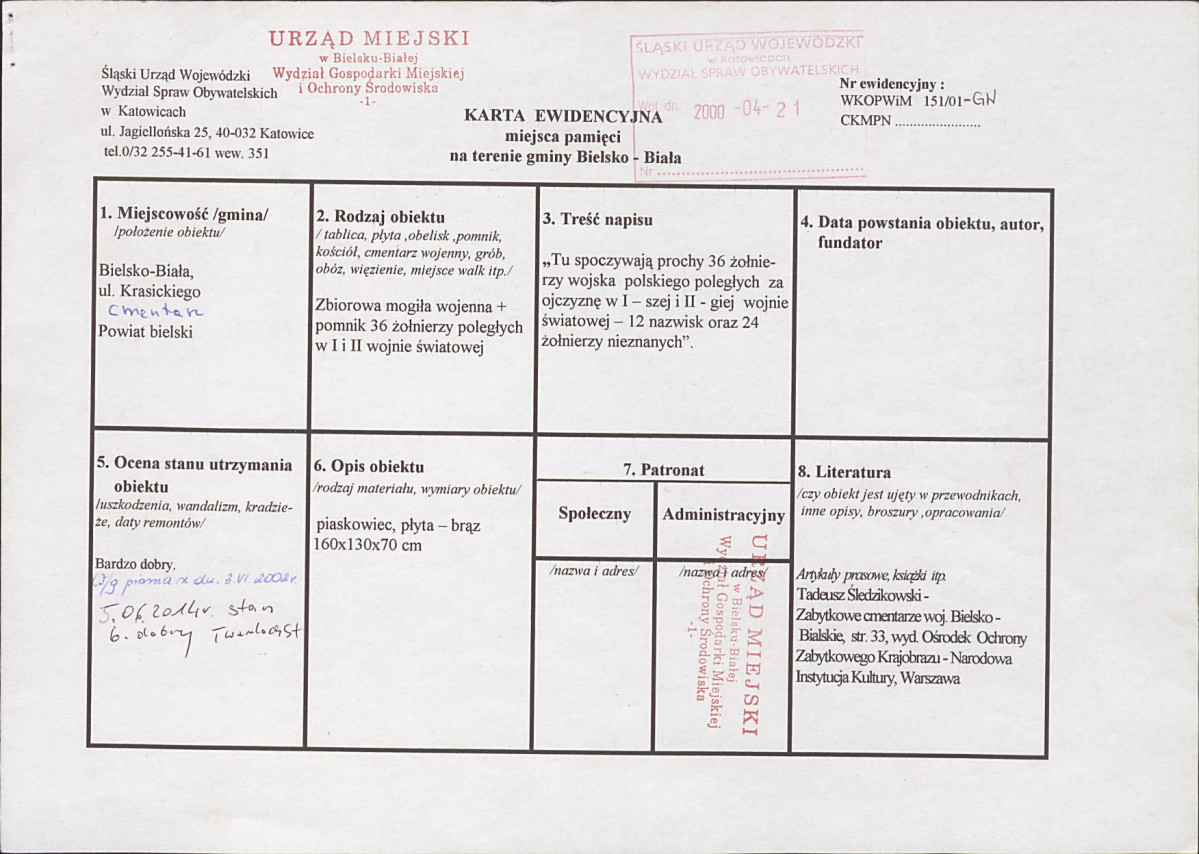 URZĄD MIEJSKI
w Bielsku-Białej
Wydział Gospodarki Miejskiej
i Ochrony Środowiska
-1-
Śląski Urząd Wojewódzki
Wydział Spraw Obywatelskich
w Katowicach
ul. Jagiellońska 25, 40-032 Katowice
tel.0/32 255-41-61 wew. 351
ŚLĄSKI URZĄD WOJEWÓDZKI
w Katowicach
WYDZIAŁ SPRAW OBYWATELSKICH
Wpł. dn. 2000 -04- 21
Nr ..............................
Nr ewidencyjny :
WKOPWiM 151/01-GN
CKMPN ........................
KARTA EWIDENCYJNA
miejsca pamięci
na terenie gminy Bielsko - Biała
1. Miejscowość /gmina/
/położenie obiektu/
Bielsko-Biała,
ul. Krasickiego
cmentarz
Powiat bielski
2. Rodzaj obiektu
/ tablica, płyta ,obelisk ,pomnik,
kościół, cmentarz wojenny, grób,
obóz, więzienie, miejsce walk itp./
Zbiorowa mogiła wojenna +
pomnik 36 żołnierzy poległych
w I i II wojnie światowej
3. Treść napisu
„Tu spoczywają prochy 36 żołnie-
rzy wojska polskiego poległych za
ojczyznę w I – szej i II - giej wojnie
światowej – 12 nazwisk oraz 24
żołnierzy nieznanych”.
4. Data powstania obiektu, autor,
fundator
5. Ocena stanu utrzymania
obiektu
/uszkodzenia, wandalizm, kradzie-
że, daty remontów/
Bardzo dobry.
W/g pisma z dn. 3.VI.2002r.
5.06.2014r. stan
b. dobry
6. Opis obiektu
/rodzaj materiału, wymiary obiektu/
piaskowiec, płyta – brąz
160x130x70 cm
7. Patronat
Społeczny
/nazwa i adres/
Administracyjny
/nazwa i adres/
URZĄD MIEJSKI
w Bielsku-Białej
Wydział Gospodarki Miejskiej
i Ochrony Środowiska
-1-
8. Literatura
/czy obiekt jest ujęty w przewodnikach,
inne opisy, broszury ,opracowania/
Artykuły prasowe, książki itp.
Tadeusz Śledzikowski -
Zabytkowe cmentarze woj. Bielsko -
Bialskie, str. 33, wyd. Ośrodek Ochrony
Zabytkowego Krajobrazu - Narodowa
Instytucja Kultury, Warszawa